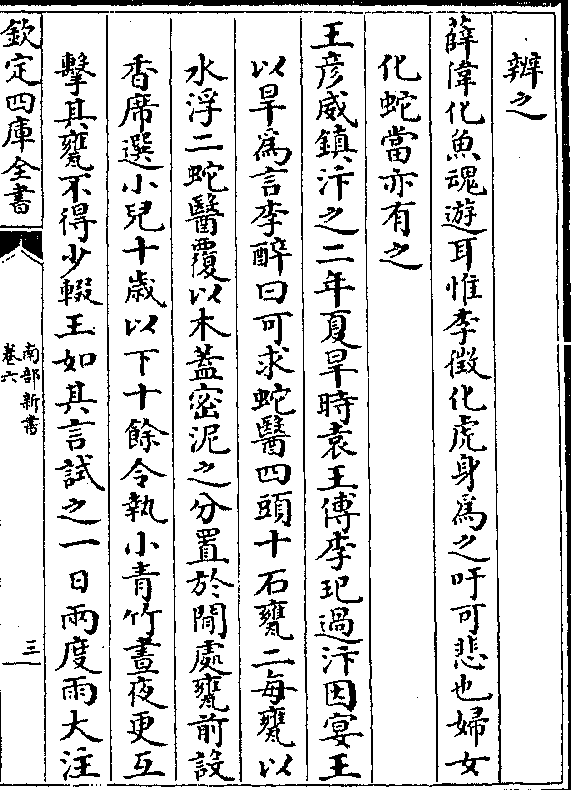 辨之
薛偉化魚魂遊耳惟李徵化虎身為之吁可悲也婦女
化蛇當亦有之
王彥威鎮汴之二年夏旱時袁王傅李玘過汴因宴王
以旱為言李醉曰可求蛇醫四頭十石甕二每甕以
水浮二蛇醫覆以木蓋密泥之分置於閙處甕前設
香席選小兒十歲以下十餘令執小青竹晝夜更互
擊其甕不得少輟王如其言試之一日兩度雨大注
欽定四庫全書
南部新書
卷六
三